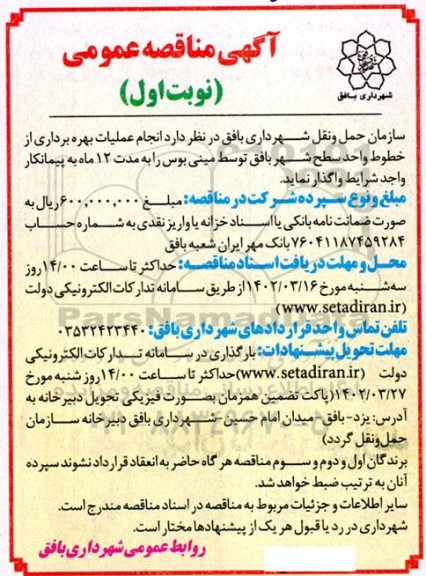 آگهی مناقصه عمومی
(نوبت اول)
شهرداری بافق
سازمان حمل ونقل شهرداری بافق در نظر دارد انجام عملیات بهره برداری از
خطوط واحد سطح شهر بافق توسط مینی بوس را به مدت ۱۲ ماه به پیمانکار
واجد شرایط واگذار نماید.
مبلغ و نوع سپرده شرکت در مناقصه: مبلغ ۶۰۰,۰۰۰,۰۰۰ ریال به
صورت ضمانت نامه بانکی یا اسناد خزانه یا واریز نقدی به شماره حساب
۷۶۰۴۱۱۸۷۴۵۹۲۸۴ بانک مهر ایران شعبه بافق
محل و مهلت دریافت اسناد مناقصه: حداکثر تا ساعت ۱۴/۰۰ روز
سه شنبه مورخ ۱۴۰۲/۰۳/۱۶ از طریق سامانه تدارکات الکترونیکی دولت
(www.setadiran.ir)
تلفن تماس واحد قراردادهای شهرداری بافق: ۰۳۵۳۲۴۲۳۴۴۰
مهلت تحویل پیشنهادات: بارگذاری در سامانه تدارکات الکترونیکی
دولت (www.setadiran.ir) حداکثر تا ساعت ۱۴/۰۰ روز شنبه مورخ
۱۴۰۲/۰۳/۲۷ (پاکت تضمین همزمان بصورت فیزیکی تحویل دبیرخانه به
آدرس: یزد- بافق- میدان امام حسین - شهرداری بافق دبیرخانه سازمان
حمل ونقل گردد)
برندگان اول و دوم و سوم مناقصه هر گاه حاضر به انعقاد قرارداد نشوند سپرده
آنان به ترتیب ضبط خواهد شد.
سایر اطلاعات و جزئیات مربوط به مناقصه در اسناد مناقصه مندرج است.
شهرداری در رد یا قبول هر یک از پیشنهادها مختار است.
روابط عمومی شهرداری بافق